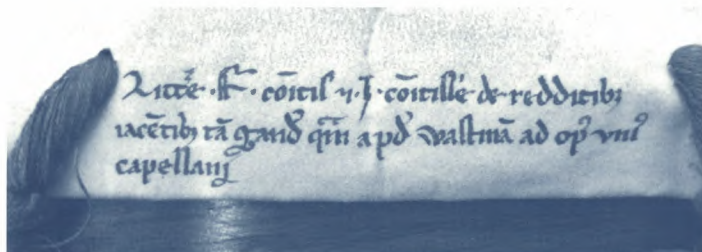 Littẽ · F · cõitis ⁊ · J · cõitisse de redditibꝫ
iacẽtibꝫ tã gand̉ qm̃ apd̉ wastinã ad opꝰ vniꝰ
capellani